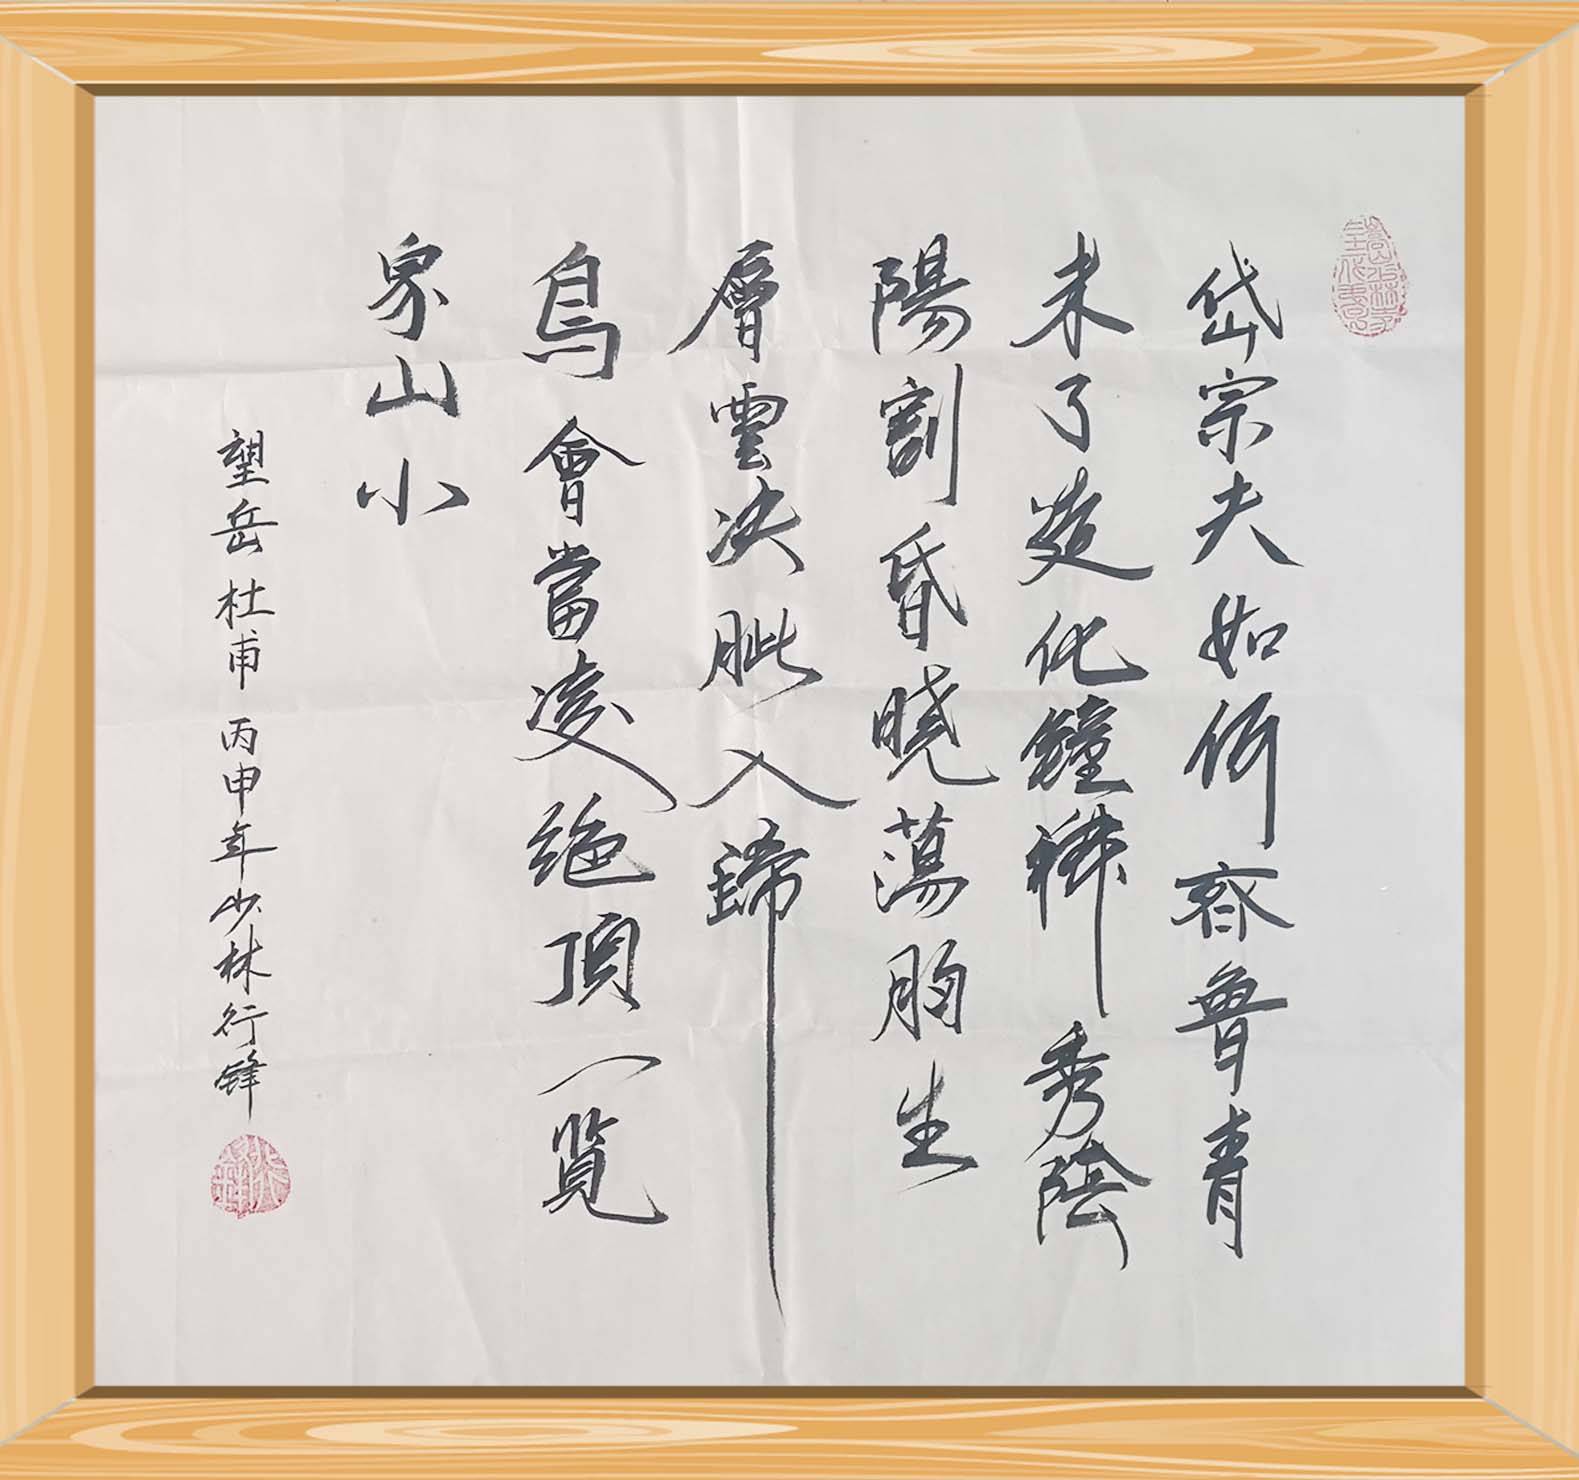 岱宗夫如何齊魯青
未了造化鐘神秀陰
陽割昏晓蕩胸生
層雲决眦入歸
鳥會當凌絶頂一覧
眾山小
望岳 杜甫 丙申年少林行鋒